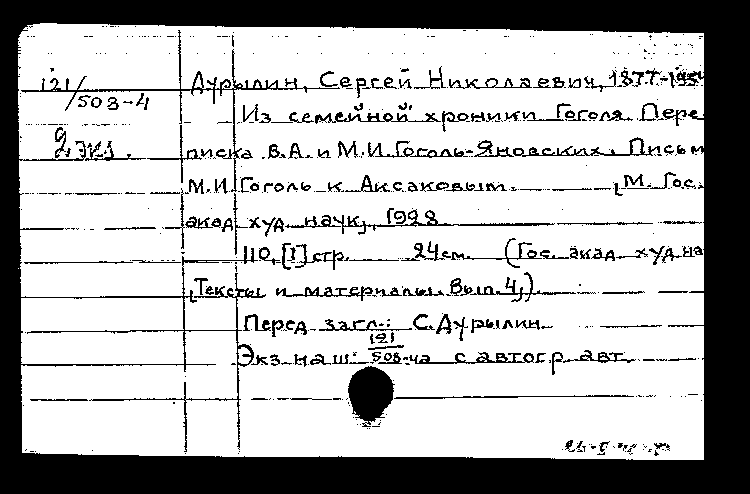 121/503-4 Дурылин, Сергей Николаевич, 1877-1954
Из семейной хроники Гоголя. Пере
2 экз. писка В.А. и М.И. Гоголь-Яновских. Письм
М.И. Гоголь к Аксаковым. [М. Гос.
акад худ. наук], 1928
110, [1] стр. 24см. (Гос. акад. худ. на
[Тексты и материалы. Вып. 4,]).
Перед загл.: С. Дурылин.
Экз. на ш: 121/503-4а с автогр. авт.